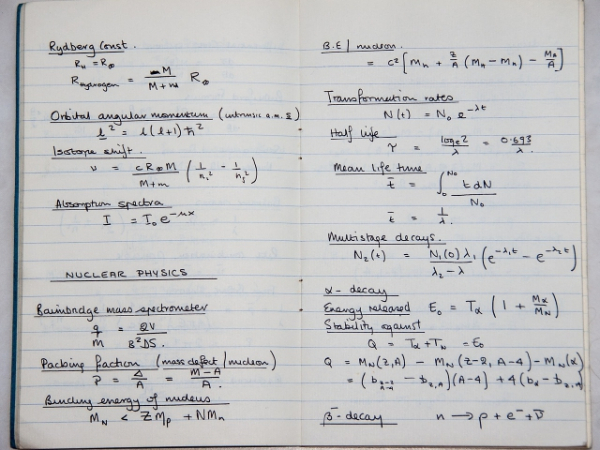 Rydberg Const.
R_H = R_∞
R_hydrogen = M / (M + m) R_∞
Orbital angular momentum (intrinsic a.m. s)
l² = l(l+1)ħ²
Isotope shift.
ν = cR_∞M / (M+m) (1/n_i² - 1/n_j²)
Absorption spectra
I = I₀e^(-μx)
NUCLEAR PHYSICS
Bainbridge mass spectrometer
q/m = 2V / B²DS.
Packing fraction (mass defect / nucleon)
P = Δ/A = (M-A)/A.
Binding energy of nucleus
M_N < ZM_p + NM_n
B.E / nucleon.
= c² [M_n + Z/A (M_H - M_n) - M_A/A]
Transformation rates
N(t) = N₀ e^(-λt)
Half life
τ = log_e 2 / λ = 0.693 / λ.
Mean life time
t̄ = ∫₀^N₀ t dN / N₀
t̄ = 1/λ.
Multistage decays.
N₂(t) = N₁(0)λ₁ / (λ₂ - λ) (e^(-λ₁t) - e^(-λ₂t))
α - decay
Energy released E₀ = T_α (1 + M_α/M_N)
Stability against
Q = T_α + T_N = E₀
Q = M_N(Z,A) - M_N(Z-2, A-4) - M_N(α)
= (b - b_Z,A)(A-4) + 4(b_α - b_Z,A)
β⁻-decay n → p + e⁻ + ν̄